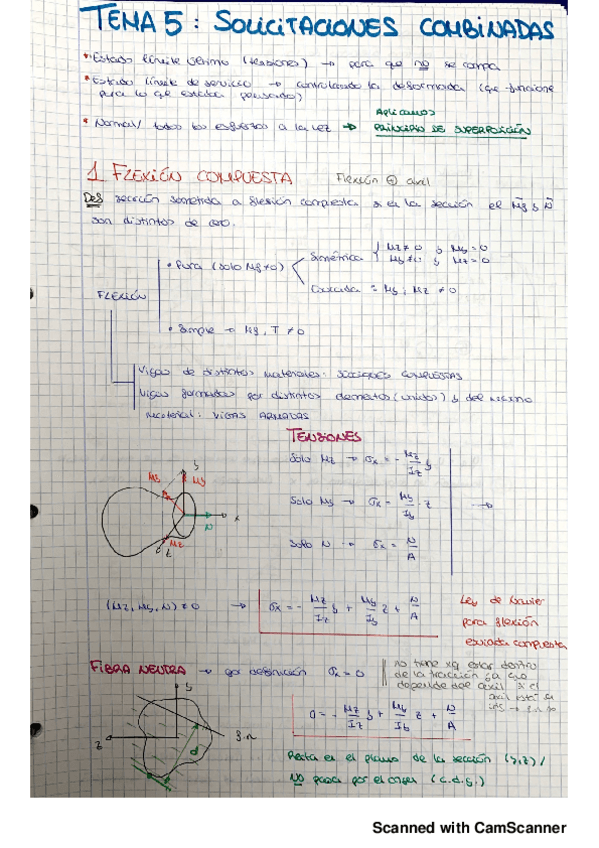 TEMA 5: SOLICITACIONES COMBINADAS
* Estado límite último (tensiones) → para que no se rompa
* Estado límite de servicio → controlando la deformada (que funcione
para lo que estaba pensado)
* Normal/ todos los esfuerzos a la vez → Aplicamos
PRINCIPIO DE SUPERPOSICIÓN
1 FLEXIÓN COMPUESTA Flexión ⊕ axil
Def sección sometida a flexión compuesta si en la sección el Mf y N
son distintos de cero.
FLEXIÓN
• Pura (solo Mf≠0)
Simétrica
Mz≠0 y My=0
My≠0 y Mz=0
Esviada = My, Mz ≠0
• Simple → Mf, T ≠0
Vigas de distintos materiales: SECCIONES COMPUESTAS
Vigas formadas por distintos elementos (unidos) y del mismo
material: VIGAS ARMADAS
TENSIONES
Solo Mz → σx = - Mz/Iz y
Solo My → σx = My/Iy · z
Solo N → σx = N/A
y
Mf
My
N
x
Mz
z
(Mz, My, N) ≠0 → σx = - Mz/Iz y + My/Iy z + N/A
Ley de Navier
para flexión
esviada compuesta
FIBRA NEUTRA → por definición σx = 0
no tiene xq estar dentro
de la
depende del axil
y
z
d
f.n
0 = - Mz/Iz y + My/Iy z + N/A
Recta en el plano de la sección (y,z) /
NO pasa por el origen (c.d.g.)
Scanned with CamScanner